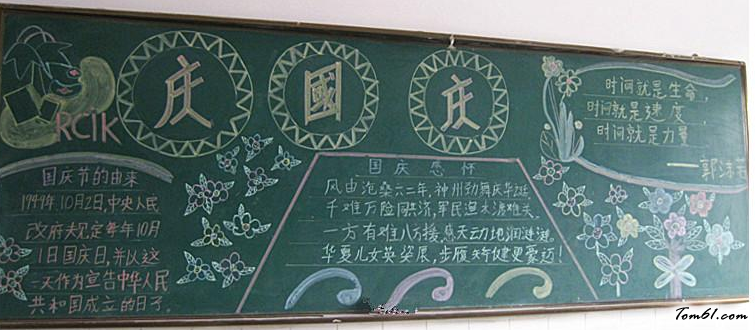 庆國庆
RCIK
国庆节的由来
1949年10月2日,中央人民
政府规定每年10月
1日国庆日,并以这
一天作为宣告中华人民
共和国成立的日子。
国庆感怀
风雨沧桑六二年,神州劲舞庆华诞
千难万险同共济,军民
一方有难八方援,感天动地润
华夏儿女英姿展,步雁矫健更豪迈!
时间就是生命,
时间就是速度,
时间就是力量
——郭沫若
Tom61.com